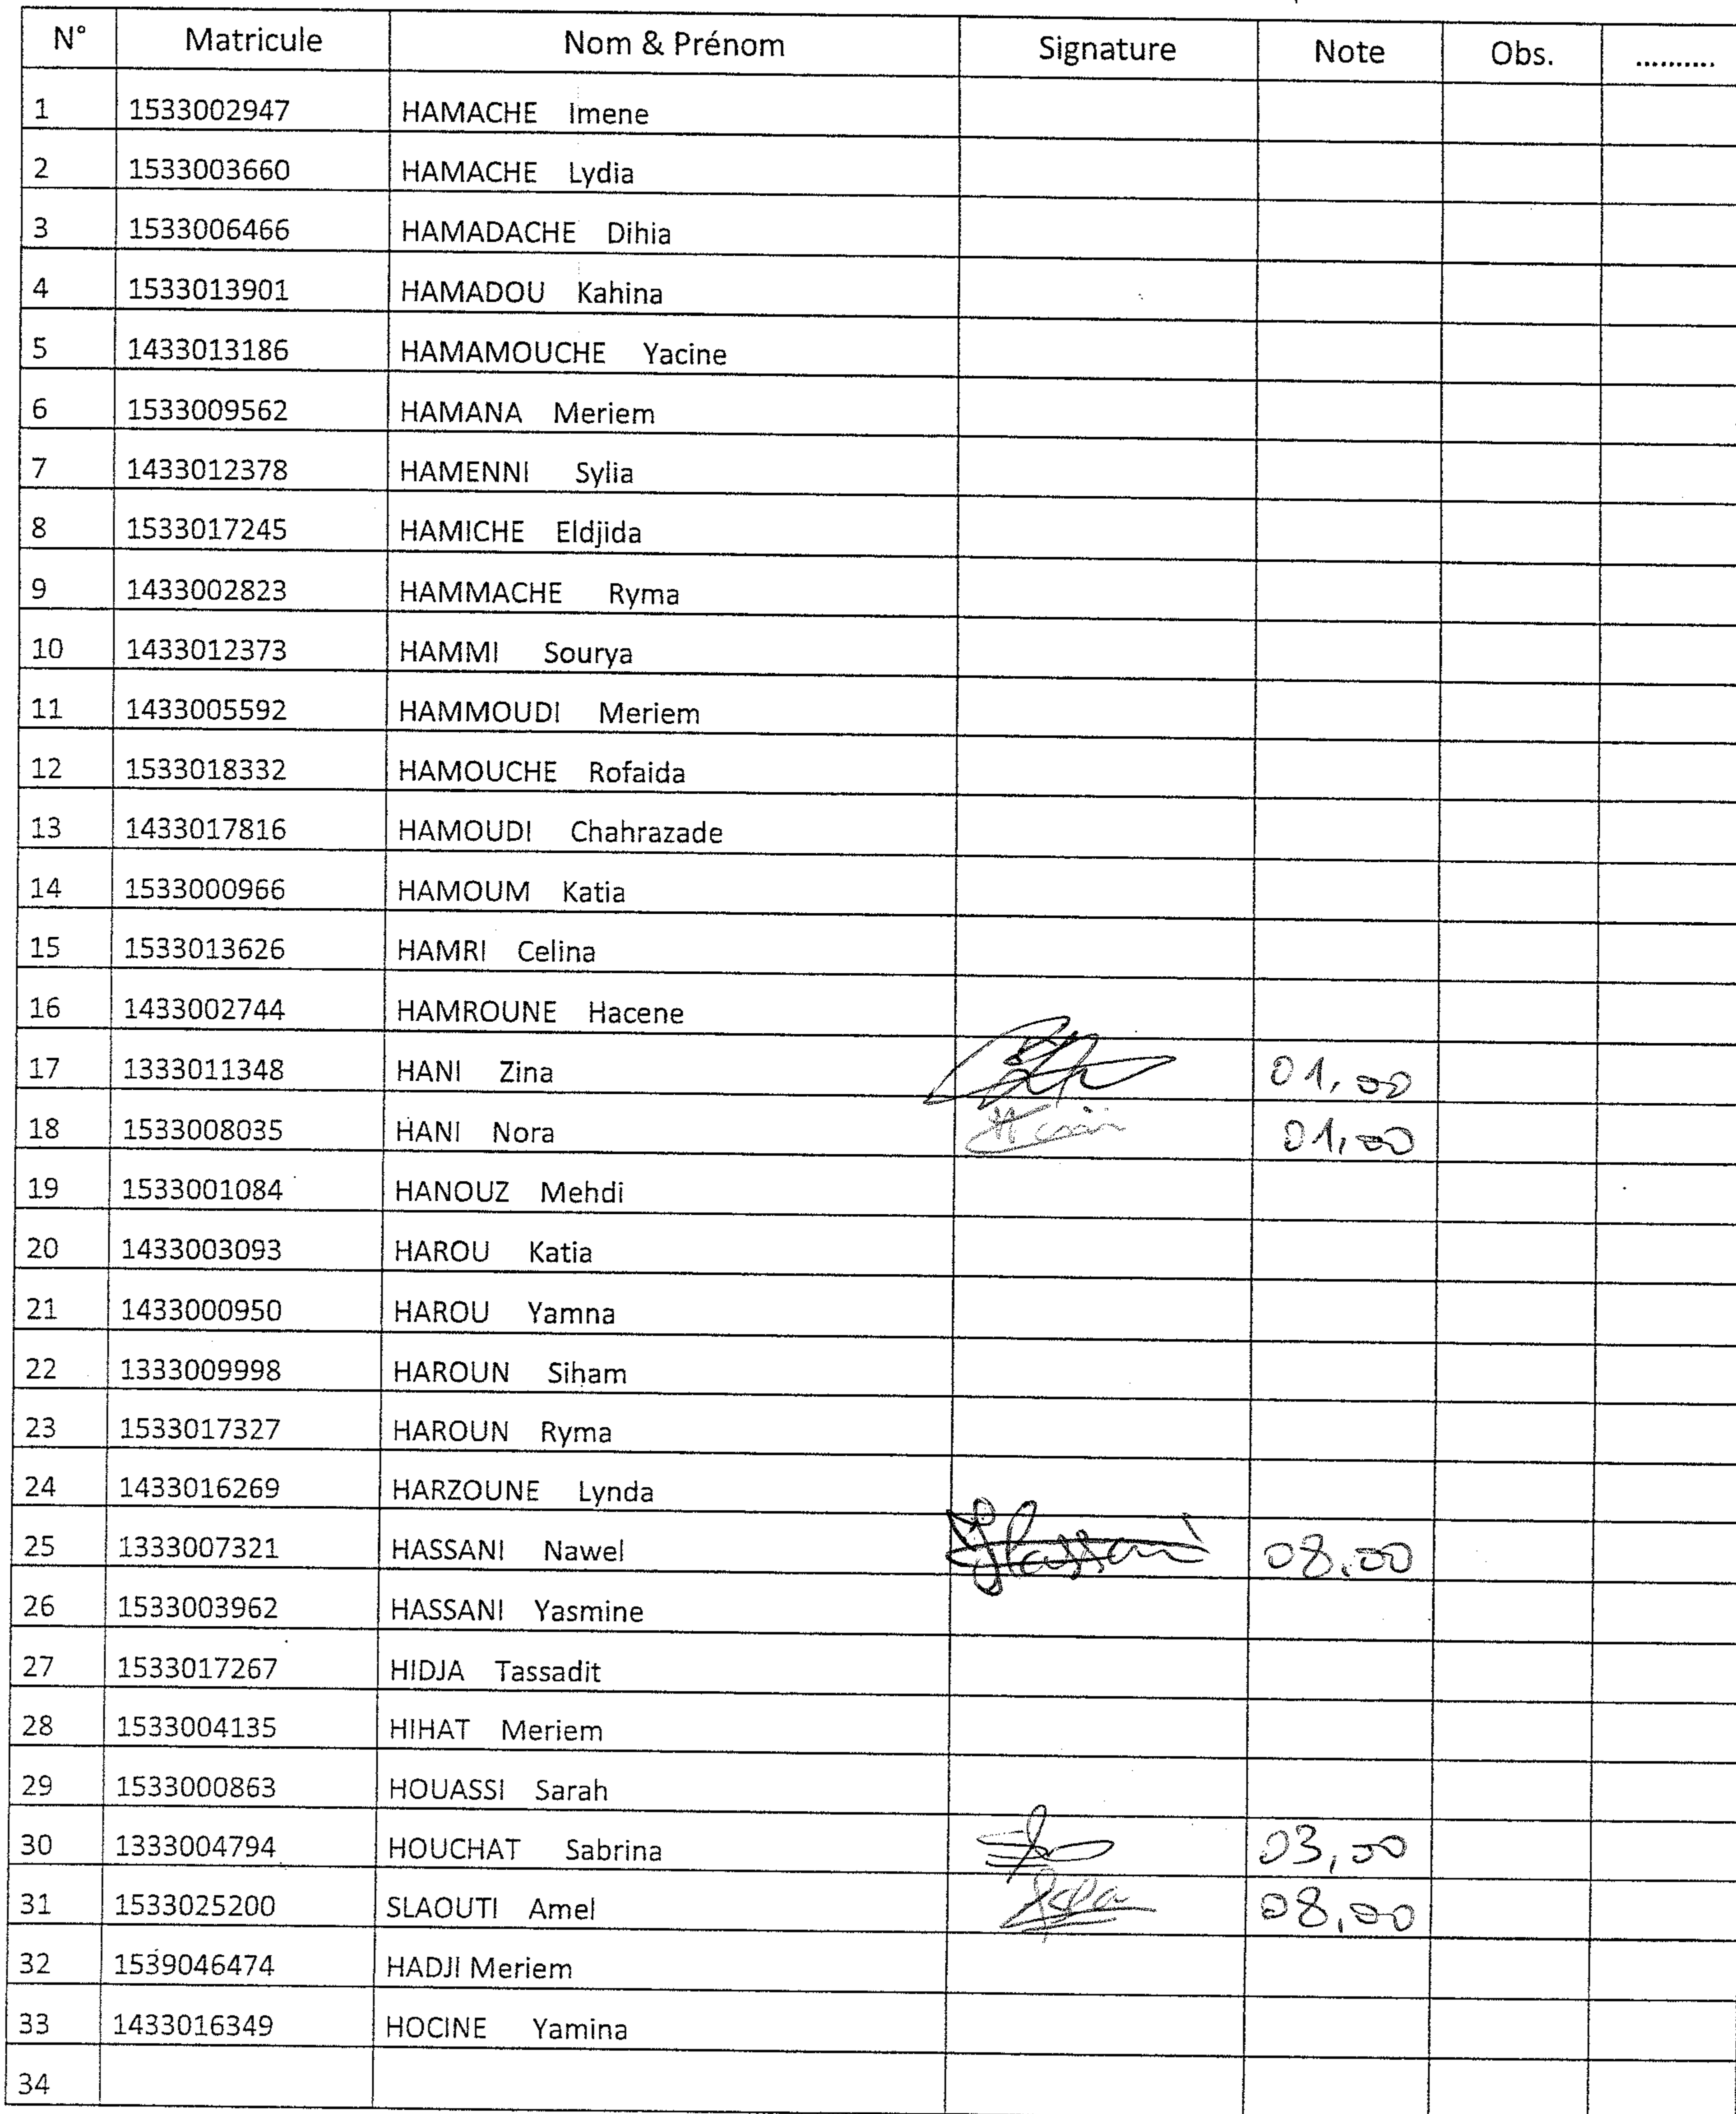 N° Matricule Nom & Prénom Signature Note Obs. ..........
1 1533002947 HAMACHE Imene
2 1533003660 HAMACHE Lydia
3 1533006466 HAMADACHE Dihia
4 1533013901 HAMADOU Kahina
5 1433013186 HAMAMOUCHE Yacine
6 1533009562 HAMANA Meriem
7 1433012378 HAMENNI Sylia
8 1533017245 HAMICHE Eldjida
9 1433002823 HAMMACHE Ryma
10 1433012373 HAMMI Sourya
11 1433005592 HAMMOUDI Meriem
12 1533018332 HAMOUCHE Rofaida
13 1433017816 HAMOUDI Chahrazade
14 1533000966 HAMOUM Katia
15 1533013626 HAMRI Celina
16 1433002744 HAMROUNE Hacene
17 1333011348 HANI Zina 01,00
18 1533008035 HANI Nora 01,00
19 1533001084 HANOUZ Mehdi
20 1433003093 HAROU Katia
21 1433000950 HAROU Yamna
22 1333009998 HAROUN Siham
23 1533017327 HAROUN Ryma
24 1433016269 HARZOUNE Lynda
25 1333007321 HASSANI Nawel Hassani 08,00
26 1533003962 HASSANI Yasmine
27 1533017267 HIDJA Tassadit
28 1533004135 HIHAT Meriem
29 1533000863 HOUASSI Sarah
30 1333004794 HOUCHAT Sabrina 03,00
31 1533025200 SLAOUTI Amel 08,00
32 1539046474 HADJI Meriem
33 1433016349 HOCINE Yamina
34